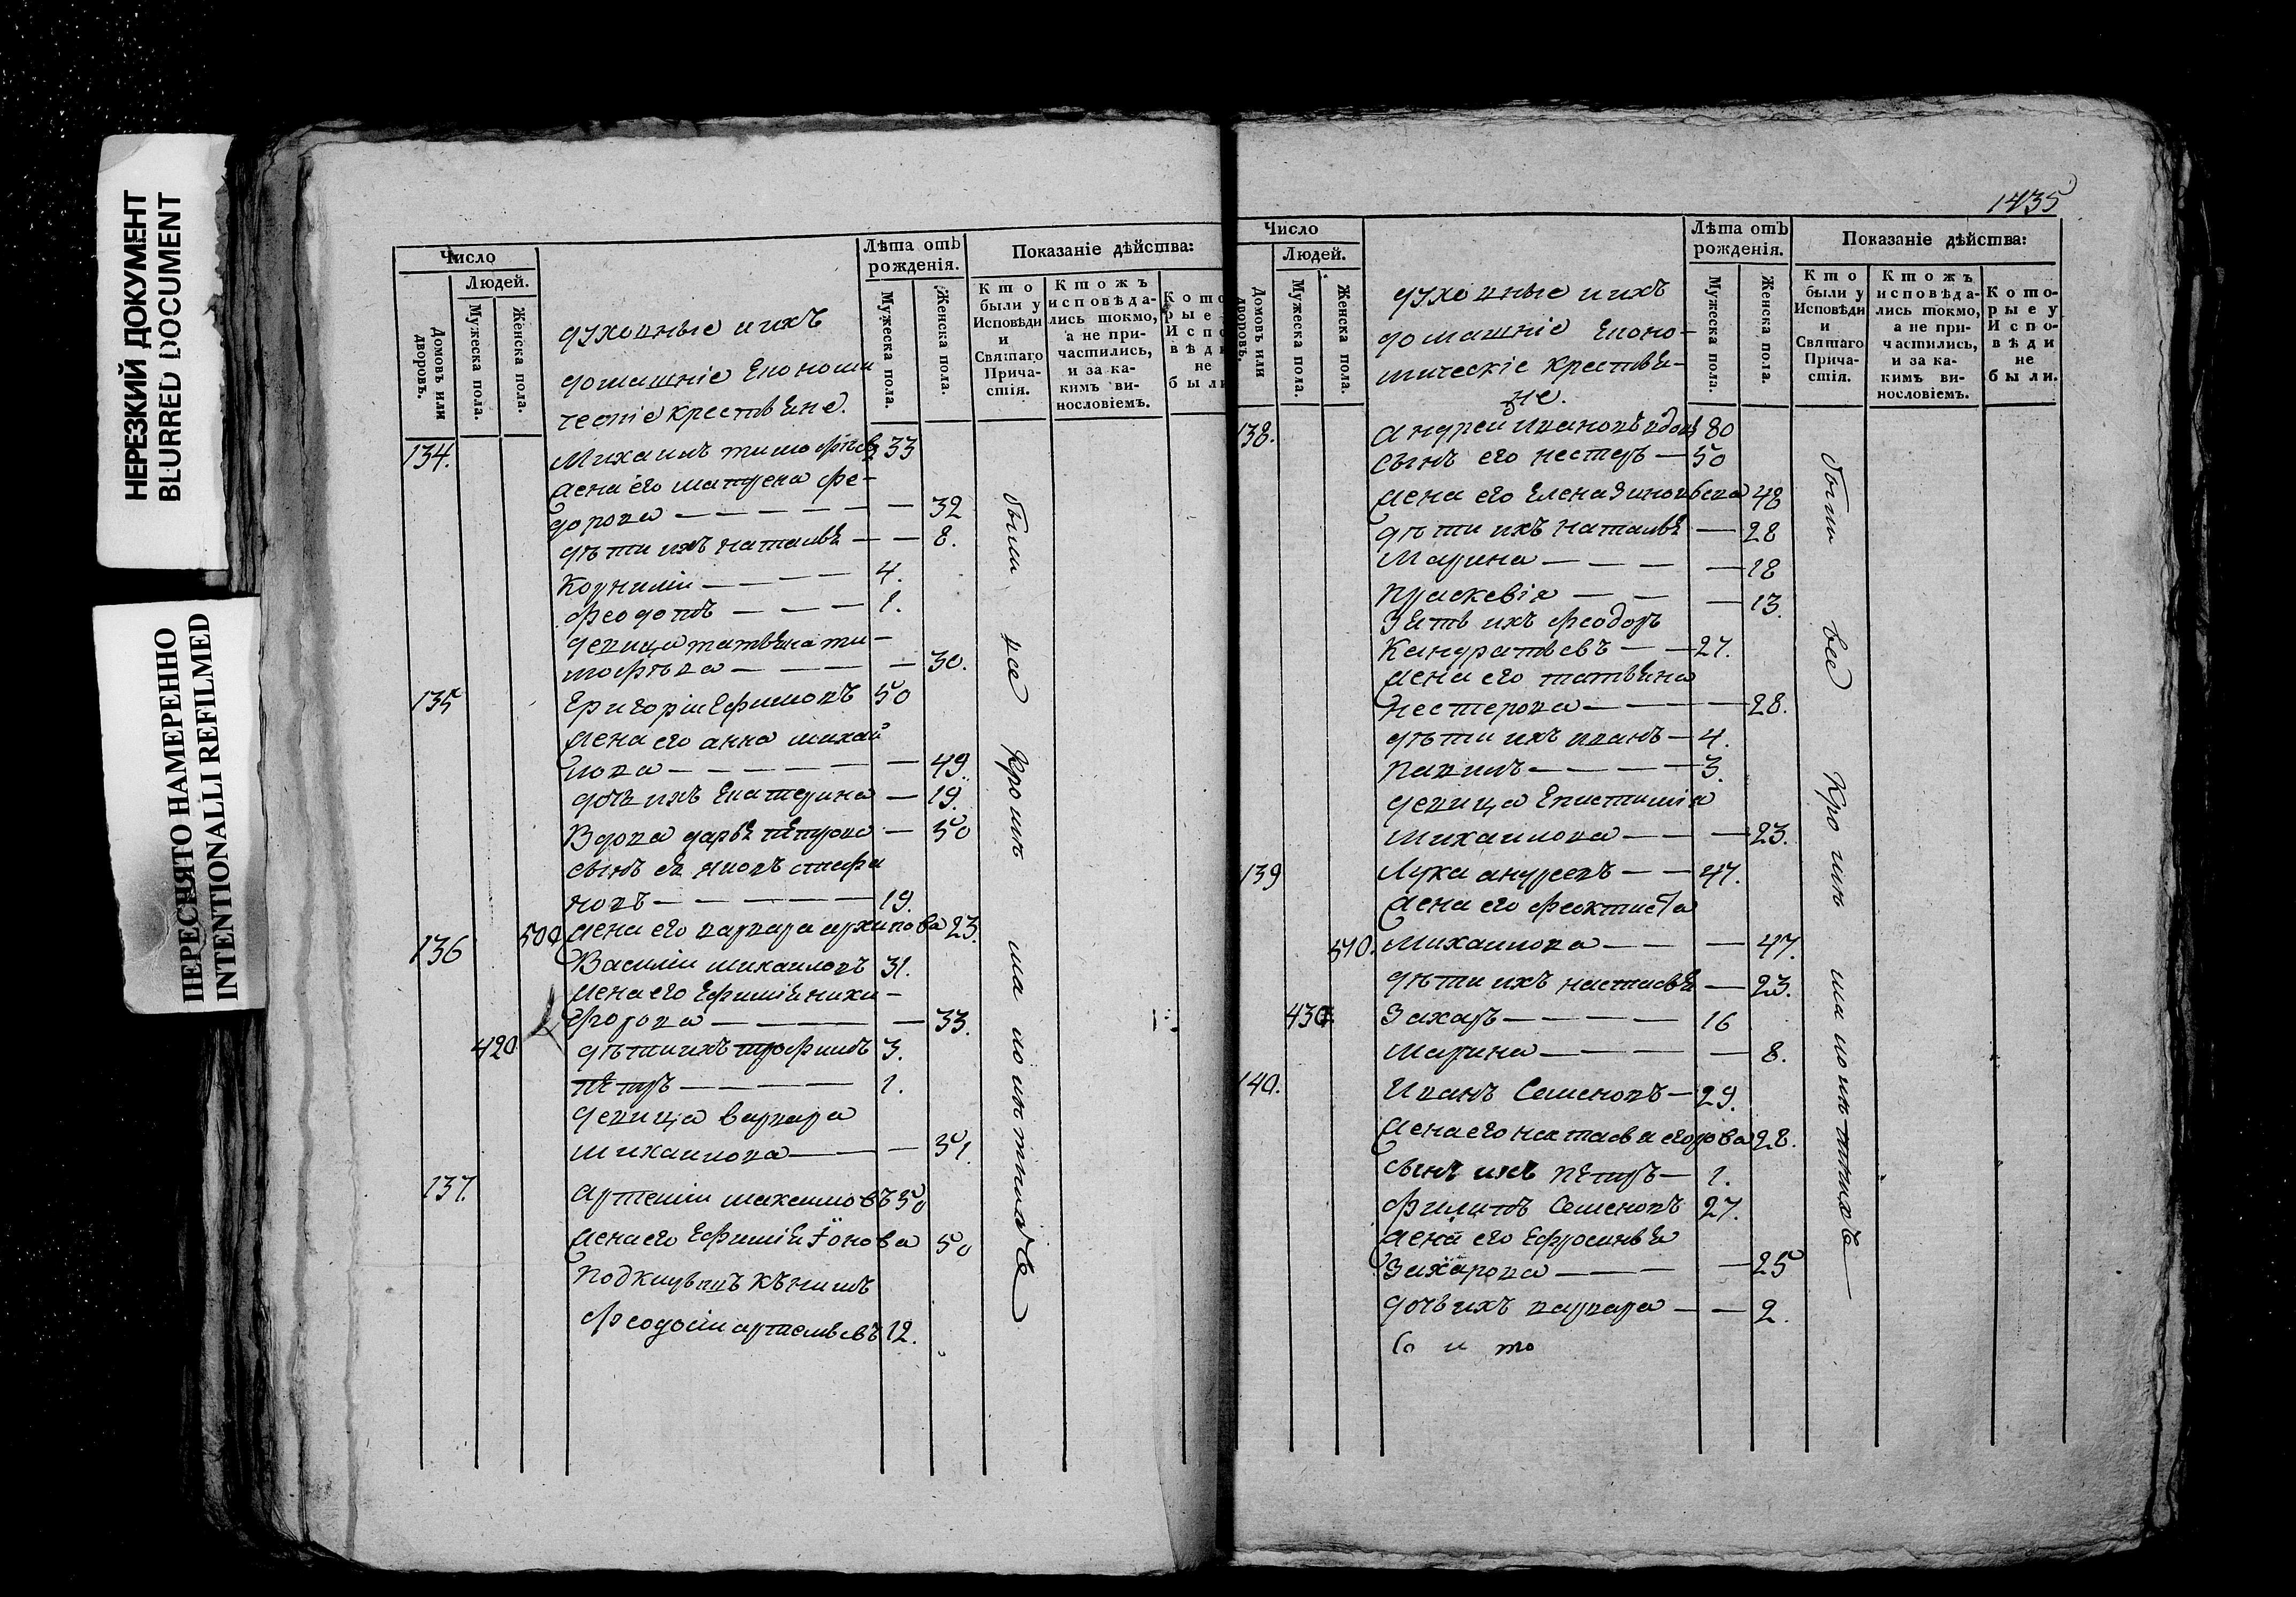 НЕРЕЗКИЙ ДОКУМЕНТ
BLURRED DOCUMENT
ПЕРЕСНЯТО НАМЕРЕННО
INTENTIONALLI REFILMED
Число
Людей.
Домовъ или дворовъ.
Мужеска пола.
Женска пола.
духовные и ихъ
домашніе Економи
ческіе крестьяне.
Лѣта отъ рождения.
Мужеска пола.
Женска пола.
Показаніе дѣйства:
Кто были у Исповѣди и Святаго Прича-стія.
Ктожъ исповѣда-лись токмо, а не при-частились, и за ка-кимъ ви-нословіемъ.
134. Михаилъ тимофѣевъ 33
жена его матрена фе-
дорова — — — — — 32
дѣти ихъ наталья — — 8.
Корнилій — — — — 4.
Феодотъ — — — 1.
девица татьяна ти-
мофѣева — — — — 30.
135 Григорій Ефимовъ 50
жена его анна михай
лова — — — — — 49.
дочь ихъ Екатерина — 19.
Вдова дарья петрова — 50
сынъ ея яковъ стефа
новъ — — — — — 19.
500 жена его варвара архипова 23.
136 Василій михаиловъ 31.
жена его Ефимія ники-
форова — — — — — 33.
420 дѣти ихъ трофимъ 3.
петръ — — — — 1.
девица варвара
михаилова — — — 31.
137. артемій максимовъ 50
жена его Ефимія Іонова 50
подкидышъ къ нимъ
Феодосій артемьевъ 12.
были все кромѣ малолѣтныхъ
1435
Число
Людей.
Домовъ или дворовъ.
Мужеска пола.
Женска пола.
духовные и ихъ
домашніе Еконо-
мическіе крестья-
не.
Лѣта отъ рожденія.
Мужеска пола.
Женска пола.
Показаніе дѣйства:
Кто были у Исповѣди и Святаго Прича-стія.
Ктожъ исповѣда-лись токмо, а не при-частились, и за ка-кимъ ви-нословіемъ.
Кото-рые у Испо-вѣди не были.
138. андрей ивановъ вдовъ 80
сынъ его нестеръ — 50
жена его Елена зиновьева 48
дѣти ихъ наталья — 28
Марина — — — — 18
Праскевія — — — 13.
Зять ихъ Феодоръ
Кандратьевъ — — 27.
жена его татьяна
нестерова — — — — 28.
дѣти ихъ иванъ — 4.
вавилъ — — — — 3.
девица Епистимія
михаилова — — — 23.
139 Лука андреевъ — — 47.
жена его Феоктиста
510. михаилова — — — 47.
дѣти ихъ настасья — 23.
430 Захаръ — — — — 16
марина — — — — 8.
140. иванъ Семеновъ — 29.
жена его настасья егорова 28.
сынъ ихъ петръ — 1.
Филипъ Семеновъ 27.
жена его Ефросинья
Захарова — — — — 25
дочь ихъ варвара — — 2.
были все кромѣ малолѣтныхъ